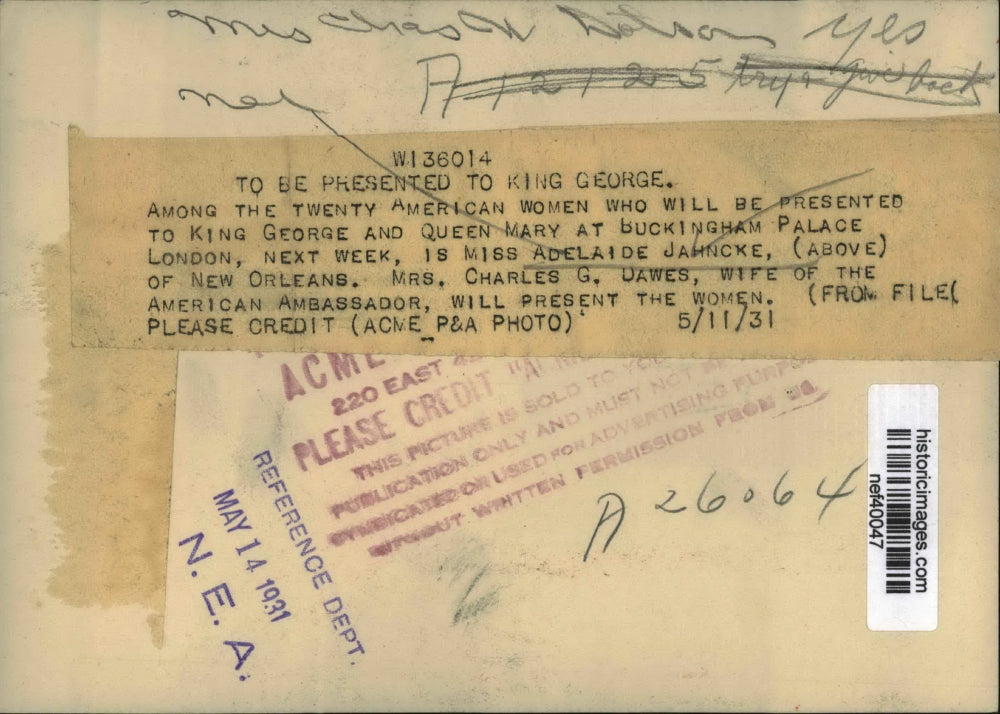 Mrs Chas W yes
A 12125 try & give back
W136014
TO BE PRESENTED TO KING GEORGE.
AMONG THE TWENTY AMERICAN WOMEN WHO WILL BE PRESENTED
TO KING GEORGE AND QUEEN MARY AT BUCKINGHAM PALACE
LONDON, NEXT WEEK, IS MISS ADELAIDE JAHNCKE, (ABOVE)
OF NEW ORLEANS. MRS. CHARLES G. DAWES, WIFE OF THE
AMERICAN AMBASSADOR, WILL PRESENT THE WOMEN. (FROM FILE(
PLEASE CREDIT (ACME P&A PHOTO) 5/11/31
ACME
220 EAST 42
PLEASE CREDIT "A
THIS PICTURE IS SOLD TO YOU
PUBLICATION ONLY AND MUST NOT BE
SYNDICATED OR USED FOR ADVERTISING PURPOSE
WITHOUT WRITTEN PERMISSION FROM US
REFERENCE DEPT.
MAY 14 1931
N. E. A.
A 26064
historicimages.com
nef40047